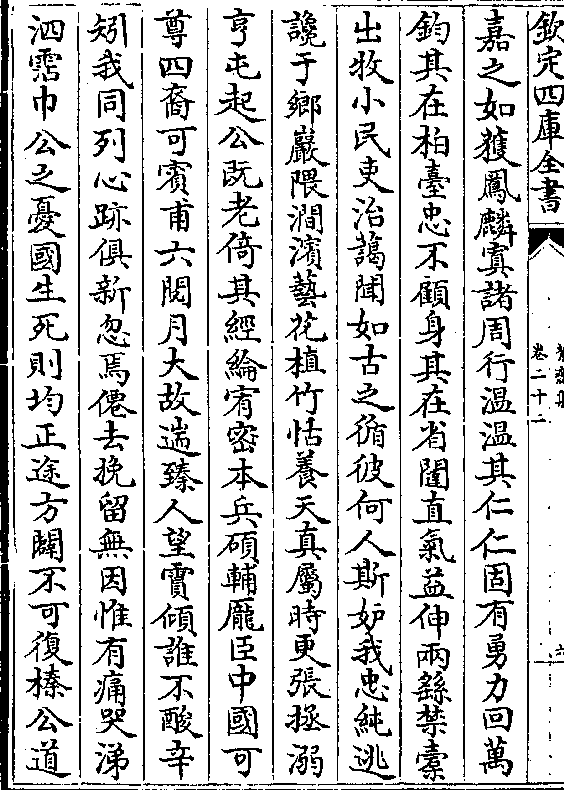 欽定四庫全書
卷二十二
嘉之如獲鳳麟寘諸周行溫溫其仁仁固有勇力回萬
鈞其在柏臺忠不顧身其在省闥直氣益伸兩繇禁橐
出牧小民吏治藹聞如古之循彼何人斯妒我忠純逃
讒于鄉巖隈澗濱藝花植竹怡養天真屬時更張拯溺
亨屯起公既老倚其經綸宥密本兵碩輔厖臣中國可
尊四裔可賓甫六閱月大故遄臻人望賈傾誰不酸辛
矧我同列心跡俱新忽焉僊去挽留無因惟有痛哭涕
泗霑巾公之憂國生死則均正途方闢不可復榛公道